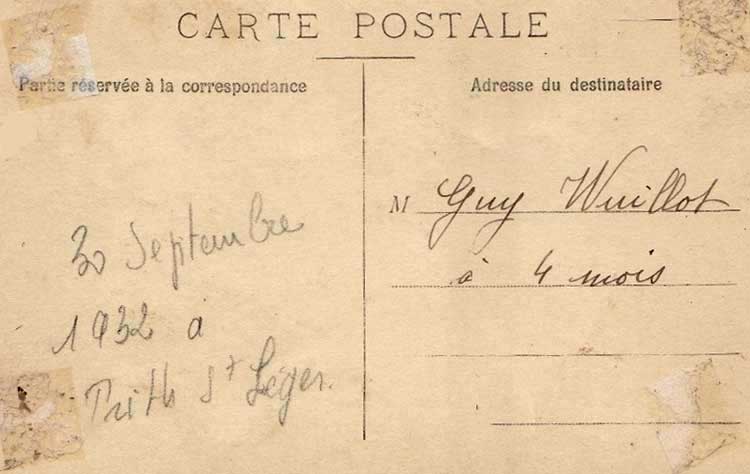 CARTE POSTALE
Partie réservée à la correspondance
Adresse du destinataire
30 Septembre
1932 à
Trith St Léger.
M Guy Wuillot
à 4 mois